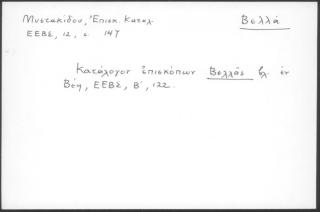 Μυστακίδου, Ἐπισκ. Καταλ. Βελλᾶ
ΕΕΒΣ, 12, σ. 147
Κατάλογον ἐπισκόπων Βελλᾶς βλ. ἐν
Βέη, ΕΕΒΣ, Β´, 122.